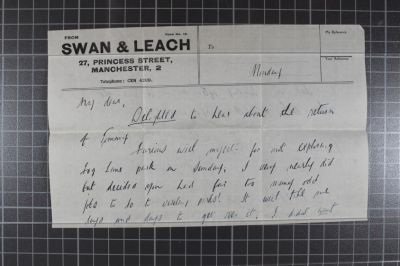 FROM
Form No. 10.
SWAN & LEACH
27, PRINCESS STREET,
MANCHESTER, 2
Telephone: CEN 4209.
To
My Reference
Your Reference
Monday
My dear,
Delighted to hear about the return
of Tommy
Furious with myself for not exploring
Lime park on Sunday. I very nearly did
but decided upon had far too many odd
jobs to do to
days and days to get over it. I didn't want